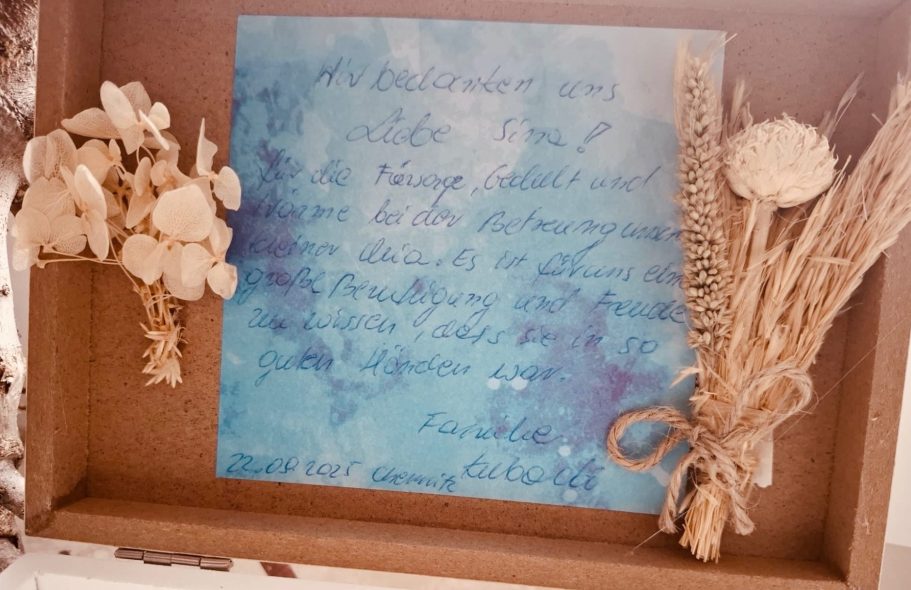 Wir bedanken uns
Liebe Sina!
für die Fürsorge, Gedult und
Wärme bei der Betreung unser
kleiner Mia. Es ist für uns ein
große Beruhigung und Freude
zu wissen, dass sie in so
guten Händen war.
Familie
22.08.2025 Chemnitz